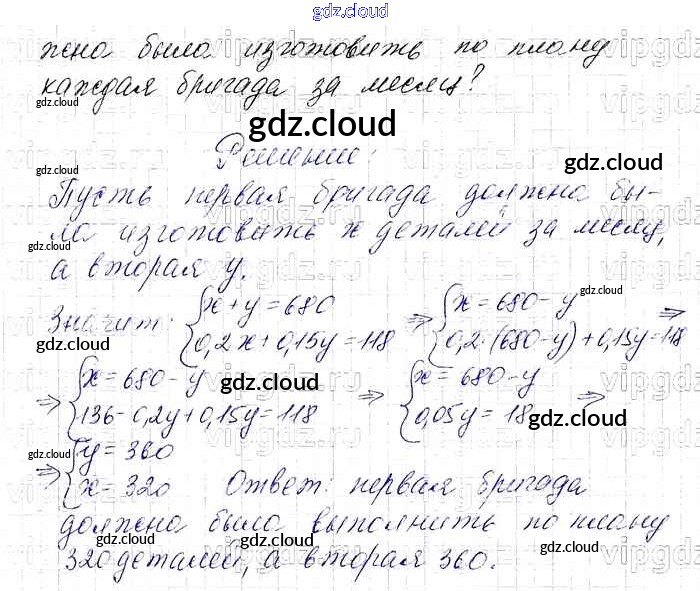 gdz.cloud
жна была изготовить по плану
каждая бригада за месяц?
gdz.cloud
gdz.cloud
Решение:
gdz.cloud
gdz.cloud
Пусть первая бригада должна бы-
gdz.cloud
ла изготовить x деталей за месяц,
gdz.cloud
а вторая y.
gdz.cloud
Значит: {x+y=680 ⇒ {x=680-y
{0,2x+0,15y=118 {0,2·(680-y)+0,15y=118
gdz.cloud gdz.cloud
⇒ {x=680-y ⇒ {x=680-y ⇒
gdz.cloud
{136-0,2y+0,15y=118 {0,05y=18
gdz.cloud gdz.cloud
⇒ {y=360
gdz.cloud
{x=320 Ответ: первая бригада
gdz.cloud
должна была выполнить по плану
gdz.cloud
320 деталей, а вторая 360.
gdz.cloud gdz.cloud